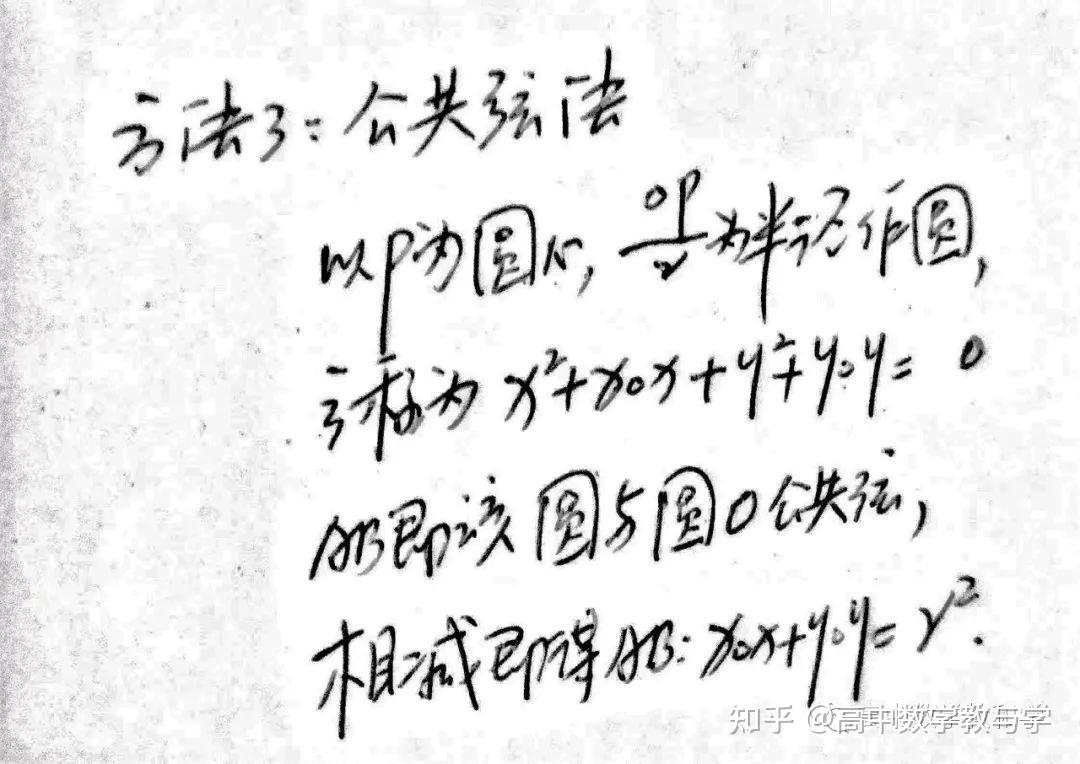 方法3：公共弦法
以P为圆心，OP/2为半径作圆，
方程为 x²+x₀x+y²+y₀y=0
AB即该圆与圆O公共弦，
相减即得AB：x₀x+y₀y=r².
知乎 @高中数学教与学